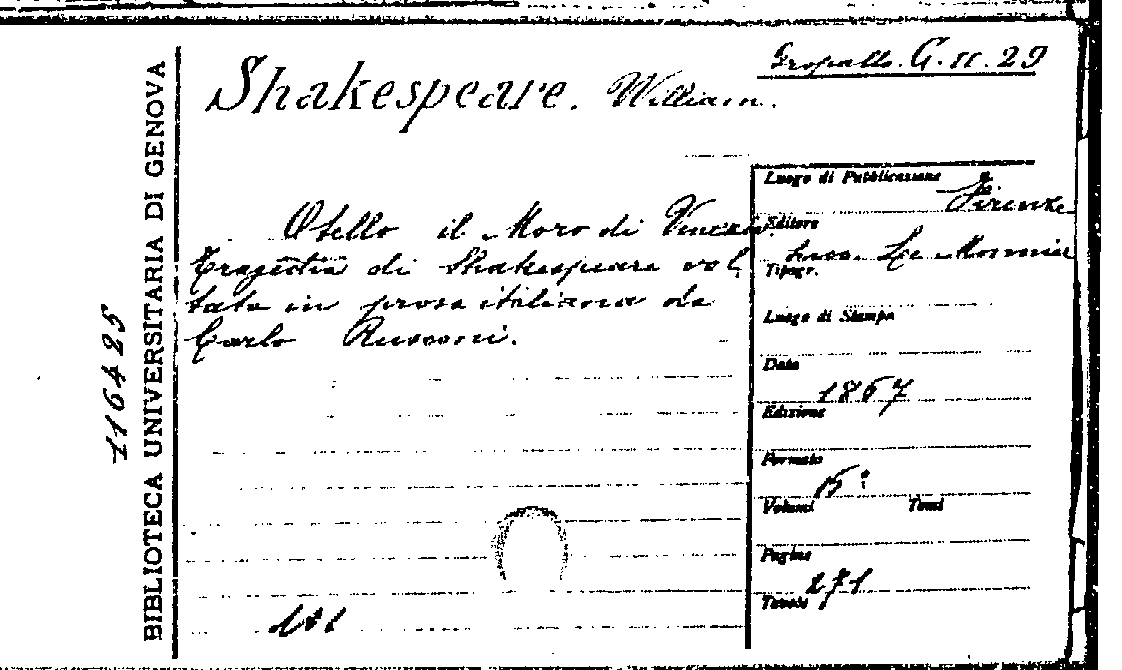 Gropallo. G. II. 29
Shakespeare. William.
Otello il Moro di Venezia
Tragedia di Shakespeare vol
tata in prosa italiana da
Carlo Rusconi.
Luogo di Pubblicazione
Firenze
Editore
succ. Le Monnier
Tipogr.
Luogo di Stampa
Data
1867
Edizione
Formato
Volumi Tomi
Pagine
271
Tavole
BIBLIOTECA UNIVERSITARIA DI GENOVA
116425